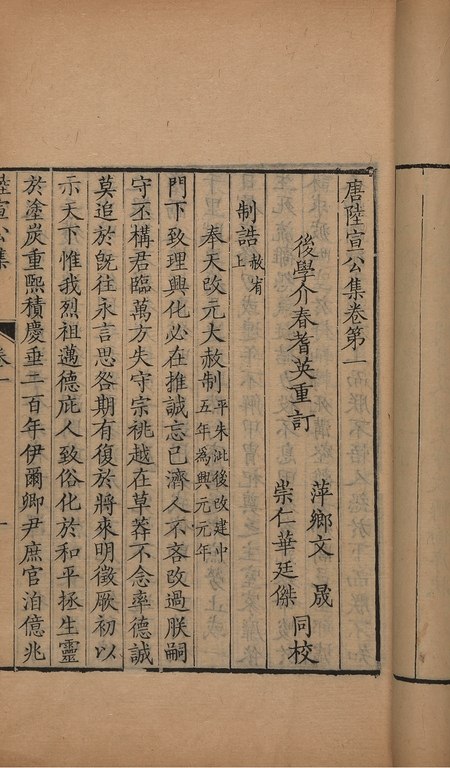 唐陸宣公集卷第一
後學介春耆英重訂
萍鄉文 晟
崇仁華廷傑 同校
制誥 赦宥上
奉天改元大赦制 平朱泚後改建中五年為興元元年
門下致理興化必在推誠忘己濟人不吝改過朕嗣
守丕構君臨萬方失守宗祧越在草莽不念率德誠
莫追於旣往永言思咎期有復於將來明徵厥初以
示天下惟我烈祖邁德庇人致俗化於和平拯生靈
於塗炭重熙積慶垂二百年伊爾卿尹庶官洎億兆
陸宣公集 卷一 一